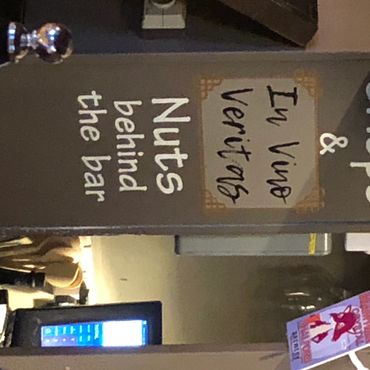 &
In Vino
Veritas
Nuts
behind
the bar